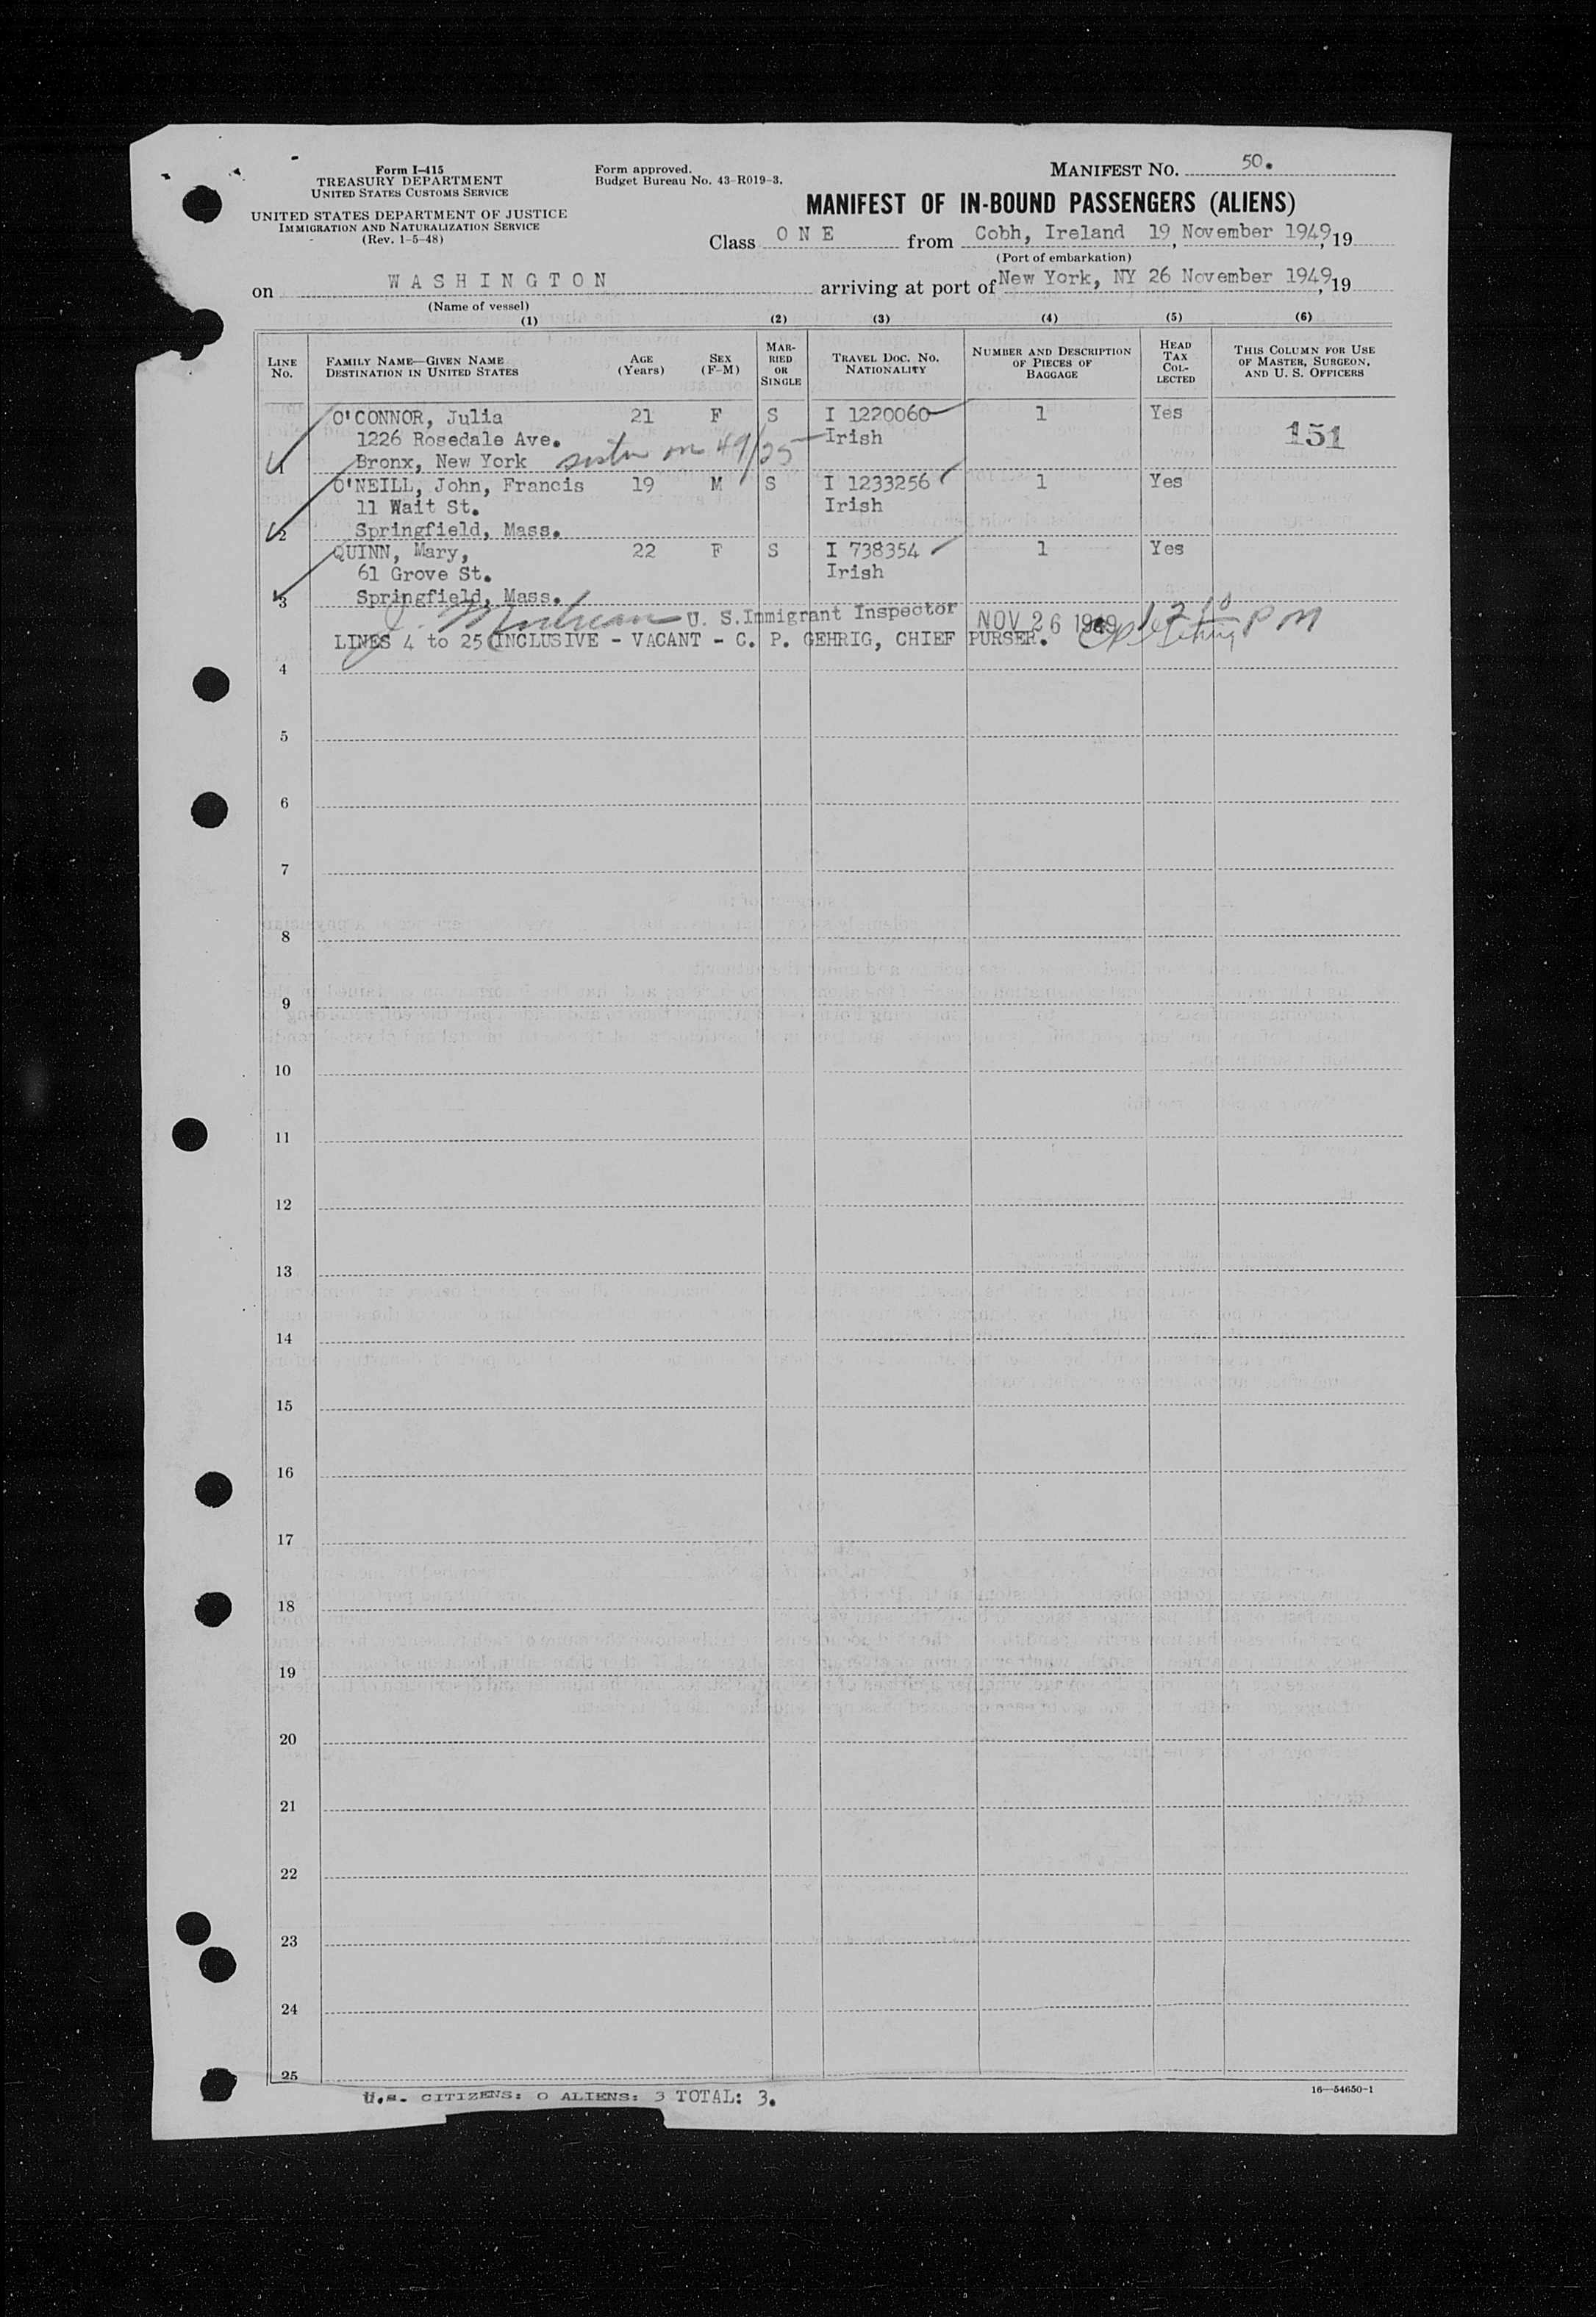 Form I-415
TREASURY DEPARTMENT
UNITED STATES CUSTOMS SERVICE
UNITED STATES DEPARTMENT OF JUSTICE
IMMIGRATION AND NATURALIZATION SERVICE
(Rev. 1-5-48)
Form approved.
Budget Bureau No. 43-R019-3.
MANIFEST NO. 50.
MANIFEST OF IN-BOUND PASSENGERS (ALIENS)
Class O N E from Cobh, Ireland 19 November 1949, 19
(Port of embarkation)
on W A S H I N G T O N arriving at port of New York, NY 26 November 1949, 19
(Name of vessel)
(1) (2) (3) (4) (5) (6)
LINE No. FAMILY NAME—GIVEN NAME DESTINATION IN UNITED STATES AGE (Years) SEX (F-M) MARRIED OR SINGLE TRAVEL DOC. NO. NATIONALITY NUMBER AND DESCRIPTION OF PIECES OF BAGGAGE HEAD TAX COLLECTED THIS COLUMN FOR USE OF MASTER, SURGEON, AND U. S. OFFICERS
O'CONNOR, Julia 21 F S I 1220060 1 Yes
1226 Rosedale Ave. Irish 151
1 Bronx, New York sister on 49/25
O'NEILL, John, Francis 19 M S I 1233256 1 Yes
11 Wait St. Irish
2 Springfield, Mass.
QUINN, Mary, 22 F S I 738354 1 Yes
61 Grove St. Irish
3 Springfield, Mass.
U. S. Immigrant Inspector NOV 26 1949 PM
LINES 4 to 25 INCLUSIVE - VACANT - C. P. GEHRIG, CHIEF PURSER.
4
5
6
7
8
9
10
11
12
13
14
15
16
17
18
19
20
21
22
23
24
25
U.S. CITIZENS: 0 ALIENS: 3 TOTAL: 3.
16—54650-1